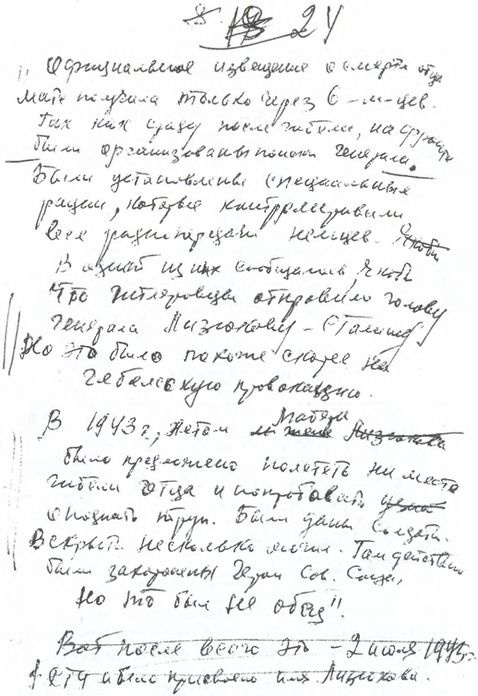 24
„Официальное извещение о смерти отца
мать получила только через 6-м-цев.
Так как сразу после гибели, на фронте
были организованы поиски генерала.
Были установлены специальные
рации, которые контролировали
все радиопередачи немцев.
В одной из них сообщались, якобы
что гитлеровцы отправили голову
генерала Лизюкову – Сталину
Но это было похоже скорее на
гебельскую провокацию.
В 1943 г, летом матери Лизюкова
было предложено полететь на место
гибели отца и попробовать
опознать труп. Были даны солдаты.
Вскрыты несколько могил. Там действит
были захоронены Герои Сов. Союза,
но то был не отец".
Вот после всего это – 2 июля 1945 г
было присвоено имя Лизюкова.